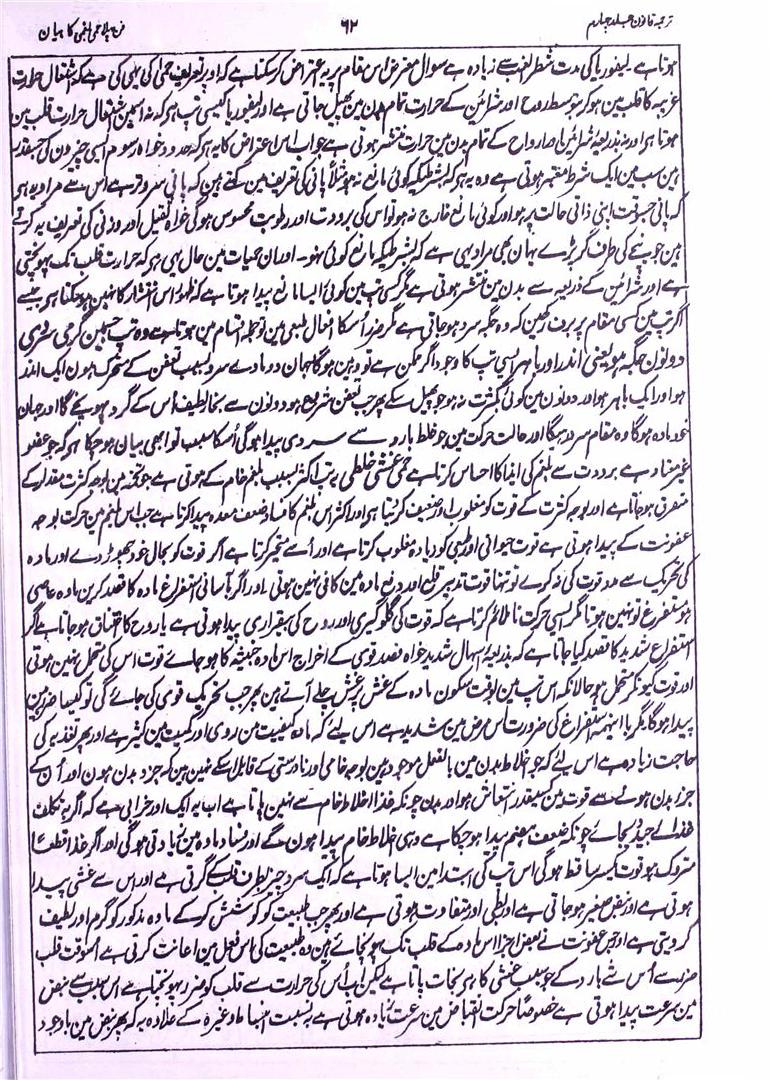 ترجمہ قانون جلد چہارم
۶۲
فن پہلا حمی بلغمی کا بیان
ہوتا ہے۔ لیفوریا کی مدت شطر الغب سے زیادہ ہے سوال معترض اس مقام پر یہ اعتراض کر سکتا ہے کہ اوپر تعریف حمی کی یہی کی ہے کہ اشتعال حرارت
غریبہ کا قلب مین ہو کر بتوسط روح اور شرائین کے حرارت تمام بدن مین پھیل جاتی ہے اور لیفوریا کیسی تپ ہے کہ نہ اسمین اشتعال حرارت قلب مین
ہوتا ہے اور نہ بذریعہ شرائین ارواح کے تمام بدن مین حرارت منتشر ہوتی ہے جواب اس اعتراض کا یہ ہے کہ حدود خواہ رسوم ایسی چیزون کی جسقدر
ہین سب مین ایک شرط معتبر ہوتی ہے وہ یہ ہے کہ بشرطیکہ کوئی مانع نہ ہو مثلاً پانی کی تعریف مین کہتے ہین کہ پانی سرد و تر ہے اس سے مراد یہ ہے
کہ پانی جسوقت اپنی ذاتی حالت پر ہو اور کوئی مانع خارج نہ ہو تو اس کی برودت اور رطوبت محسوس ہوگی خواہ ثقیل اور وزنی کی تعریف یہ کرتے
ہین جو نیچے کی طرف گر پڑے یہان بھی مراد یہی ہے کہ بشرطیکہ مانع کوئی نہو۔ اور ان حمیات مین حال یہی ہے کہ حرارت قلب تک پہونچتی
ہے اور شرائین کے ذریعہ سے بدن مین منتشر ہوتی ہے مگر کسی تپ مین کوئی ایسا مانع پیدا ہوتا ہے کہ ظہور اس انتشار کا نہین ہو سکتا ہے جیسے
اگر تپ مین کسی مقام پر برف رکھین کہ وہ جگہ سرد ہو جاتی ہے مگر ضرر اسکا افعال طبعی مین ہوتا ہے وہ تپ جسمین گرمی سردی
دونون جگہ ہو یعنی اندر اور باہر ایسی تپ کا وجود اگر ممکن ہے تو وہین ہوگا جہان دو مادے سرد بسبب تعفن کے متحرک ہون ایک اندر
ہو اور ایک باہر ہو اور دونون مین کوئی بکثرت نہ ہو جو پھیل سکے پھر جب تعفن شروع ہو دونون سے بخار لطیف اس کے گرد پہونچے گا اور جہان
خود مادہ ہوگا وہ مقام سرد رہیگا اور حالت حرکت مین جو خلط بارد سے سردی پیدا ہوگی اسکا سبب تو ابھی بیان ہو چکا ہے کہ جو عضو
غیر معتاد ہے برودت سے بلغم کی ایذا کا احساس کرتا ہے حمی غشی خلطی یہ تپ اکثر بسبب بلغم خام کے ہوتی ہے جو تخمہ مین بوجہ کثرت مقدار کے
متفرق ہو جاتا ہے اور بوجہ کثرت کے قوت کو مغلوب اور ضعیف کر دیتا ہے اور اکثر اس بلغم کا فساد ضعف معدہ پیدا کرتا ہے جب اس بلغم مین حرکت بوجہ
عفونت کے پیدا ہوتی ہے قوت حیوانی اور طبعی کو زیادہ مغلوب کرتا ہے اور اسے متحیر کرتا ہے اگر قوت کو بحال خود چھوڑ دے اور مادہ
کی تحریک سے مدد قوت کی نہ کرے تو تنہا قوت تدبیر قلع اور دفع مادہ مین کافی نہین ہوتی اور اگر بآسانی استفراغ مادہ کا قصد کرین مادہ عاصی
ہو مستفرغ تو نہین ہوتا مگر ایسی حرکت ناملائم کرتا ہے کہ قوت کی گلوگیری اور روح کی بیقراری پیدا ہوتی ہے یا روح کا اختناق ہو جاتا ہے اگر
استفراغ شدید کا قصد کیا جاتا ہے کہ بذریعہ اسہال شدید خواہ فصد قوی کے اخراج اس مادہ خبیثہ کا ہو جائے قوت اس کی متحمل نہین ہوتی
اور قوت کیونکر متحمل ہو حالانکہ اس تپ مین بوقت سکون مادہ کے غش پر غش چلے آتے ہین پھر جب تحریک قوی کی جائے گی تو کیسا ضرر نہین
پیدا ہوگا۔ مگر با اینہمہ استفراغ کی ضرورت اس مرض مین شدید ہے اس لیے کہ مادہ کیفیت مین روی اور کمیت مین کثیر ہے اور پھر تغذیہ کی
حاجت زیادہ ہے اس لیے کہ جو اخلاط بدن مین بالفعل موجود ہین بوجہ خامی اور نادرستی کے قابل اسکے نہین ہین کہ جزو بدن ہون اور ان کے
جزو بدن ہونے سے قوت مین کسیقدر انتعاش ہو اور بدن چونکہ غذا اخلاط خام سے نہین پاتا ہے اب یہ ایک اور خرابی ہے کہ اگر بہ تکلف
غذائے جید دیجائے چونکہ ضعف ہضم پیدا ہو چکا ہے وہی اخلاط خام پیدا ہون گے اور فساد مادہ مین زیادتی ہوگی اور اگر غذا قطعاً
متروک ہو قوت یکسر ساقط ہوگی اس تپ کی ابتدا مین ایسا ہوتا ہے کہ ایک سرد چیز بطرف قلب کے گرتی ہے اور اس سے غشی پیدا
ہوتی ہے اور نبض صغیر ہو جاتی ہے اور بطی اور متفاوت ہوتی ہے اور پھر جب طبیعت کو کوشش کر کے مادہ مذکور کو گرم اور لطیف
کر دیتی ہے اور جس عفونت نے بعض اجزا اس مادہ کے قلب تک پہونچائے ہین وہ طبیعت کی اس فعل مین اعانت کرتی ہے اسوقت قلب
ضرر سے اس شے بارد کے جو سبب غشی کا ہے نجات پاتا ہے لیکن اب اس کی حرارت سے قلب کو ضرر پہونچتا ہے اس سبب سے نبض
مین سرعت پیدا ہوتی ہے خصوصاً حرکت انقباض مین سرعت زیادہ ہوتی ہے بہ نسبت انبساط وغیرہ کے علاوہ یہ کہ پھر نبض مین باوجود